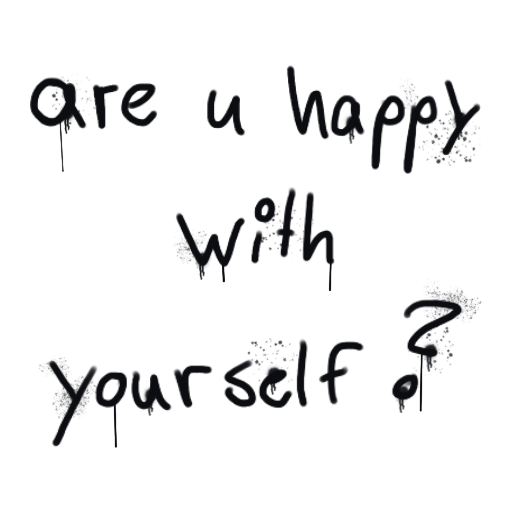 are u happy
with
yourself?